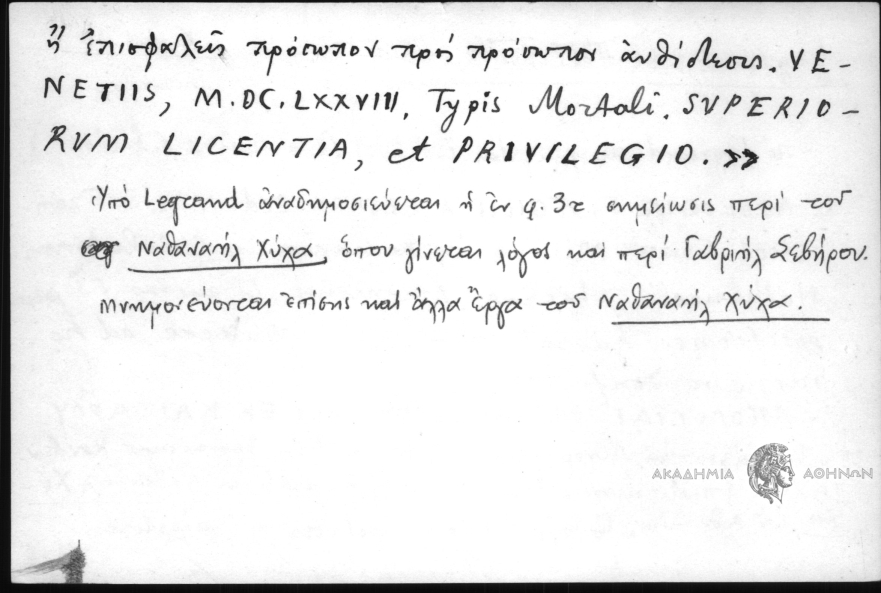 ἢ ἐπισφαλεῖς πρόσωπον πρὸς πρόσωπον ἀνθίστασις. VE-
NETIIS, M.DC.LXXVIII, Typis Mortali. SVPERIO-
RVM LICENTIA, et PRIVILEGIO.»
Ὑπὸ Legrand ἀναδημοσιεύεται ἡ ἐν φ. 3τ σημείωσις περὶ τοῦ
Ναθαναὴλ Χύχα, ὅπου γίνεται λόγος καὶ περὶ Γαβριὴλ Σεβήρου.
Μνημονεύονται ἐπίσης καὶ ἄλλα ἔργα τοῦ Ναθαναὴλ Χύχα.
ΑΚΑΔΗΜΙΑ ΑΘΗΝΩΝ